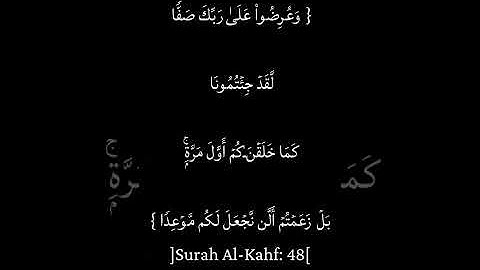 { وَعُرِضُوا۟ عَلَىٰ رَبِّكَ صَفًّا
لَّقَدۡ جِئۡتُمُونَا
كَمَا خَلَقۡنَـٰكُمۡ أَوَّلَ مَرَّةِۭۚ
كَمَـ
مَرَّةِۭۚ
بَلۡ زَعَمۡتُمۡ أَلَّن نَّجۡعَلَ لَكُم مَّوۡعِدࣰا }
]Surah Al-Kahf: 48[